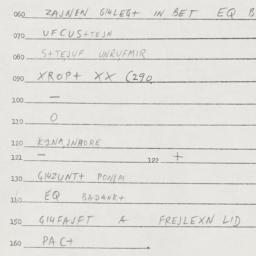 060 ZAJNEN GI4LEG+ IN BET EQ B
070 UFCUS+TEJN
080 S+TEJUF UNRUFMIR
090 XROP+ XX (290
100 —
110 O
120 K1NA,INADRE
121 — 122 +
130 GI4ZUNT+ PONIM
140 EQ BADANK+
150 GI4FAJFT A FREJLEXN LID
160 PAC+